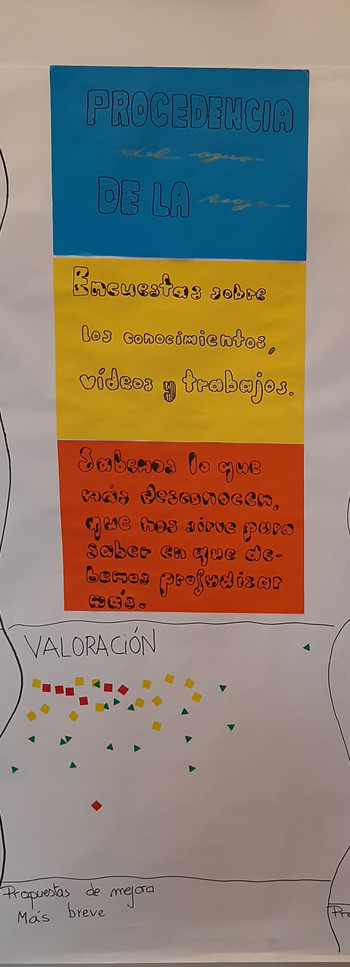 PROCEDENCIA
del agua
DE LA
Encuestas sobre
los conocimientos,
vídeos y trabajos.
Sabemos lo que
más desconocen,
que nos sirve para
saber en que de-
bemos profudizar
más.
VALORACIÓN
Propuestas de mejora
Más breve